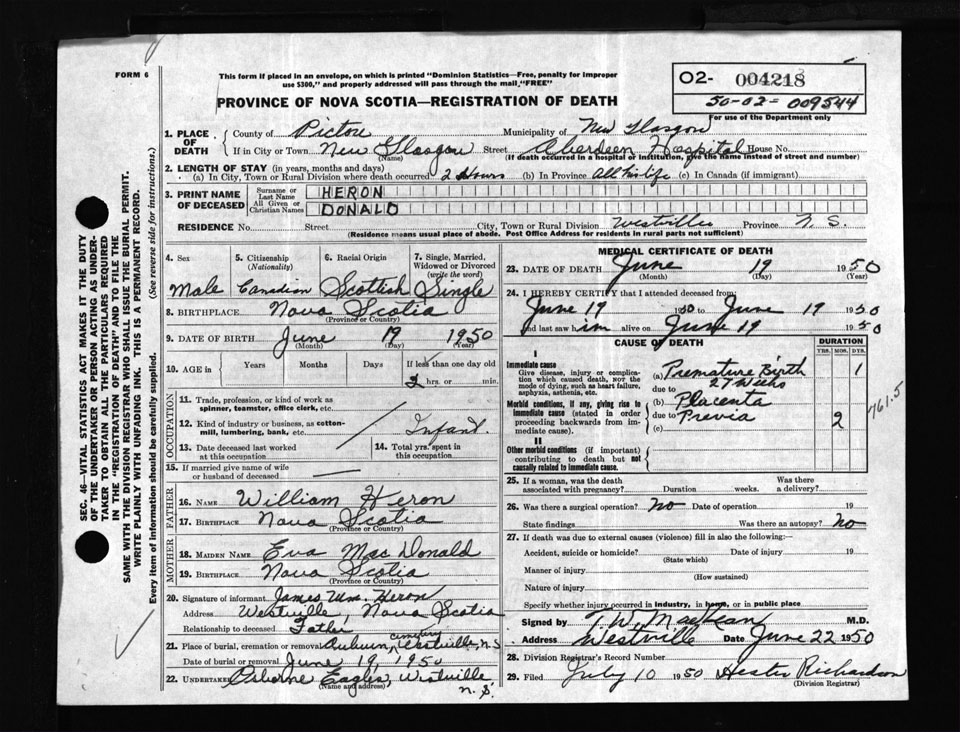 FORM 6
This form if placed in an envelope, on which is printed "Dominion Statistics—Free, penalty for improper
use $300," and properly addressed will pass through the mail "FREE"
PROVINCE OF NOVA SCOTIA—REGISTRATION OF DEATH
O2- 004218
50-02-009544
For use of the Department only
1. PLACE OF DEATH
County of Pictou Municipality of New Glasgow
If in City or Town New Glasgow Street Aberdeen Hospital House No.
(Name) (If death occurred in a hospital or institution, give the name instead of street and number)
2. LENGTH OF STAY (in years, months and days)
(a) In City, Town or Rural Division where death occurred 2 Hours (b) In Province All his life (c) In Canada (if immigrant)
3. PRINT NAME OF DECEASED
Surname or Last Name HERON
All Given or Christian Names DONALD
RESIDENCE No. Street City, Town or Rural Division Westville Province N. S.
(Residence means usual place of abode. Post Office Address for residents in rural parts not sufficient)
4. Sex Male
5. Citizenship (Nationality) Canadian
6. Racial Origin Scottish
7. Single, Married, Widowed or Divorced (write the word) Single
8. BIRTHPLACE Nova Scotia
(Province or Country)
9. DATE OF BIRTH June 19 1950
(Month) (Day) (Year)
10. AGE in Years Months Days If less than one day old
2 hrs. or min.
OCCUPATION
11. Trade, profession, or kind of work as
spinner, teamster, office clerk, etc.
12. Kind of industry or business, as cotton-
mill, lumbering, bank, etc. Infant
13. Date deceased last worked
at this occupation
14. Total yrs. spent in
this occupation
15. If married give name of wife
or husband of deceased
FATHER
16. NAME William Heron
17. BIRTHPLACE Nova Scotia
(Province or Country)
MOTHER
18. MAIDEN NAME Eva MacDonald
19. BIRTHPLACE Nova Scotia
(Province or Country)
20. Signature of informant James Wm. Heron
Address Westville, Nova Scotia
Relationship to deceased Father
21. Place of burial, cremation or removal Auburn cemetery, Westville, N.S
Date of burial or removal June 19, 1950
22. UNDERTAKER Osborne Eagles, Westville
(Name and address) N. S.
MEDICAL CERTIFICATE OF DEATH
23. DATE OF DEATH June 19 1950
(Month) (Day) (Year)
24. I HEREBY CERTIFY that I attended deceased from:
June 19 1950 to June 19 1950
and last saw him alive on June 19 1950
CAUSE OF DEATH
DURATION
YRS. MOS. DYS.
I
Immediate cause
Give disease, injury or complica-
tion which caused death, NOT the
mode of dying, such as heart failure,
asphyxia, asthenia, etc.
(a) Premature Birth 1
27 Weeks
due to
Morbid conditions, if any, giving rise to
immediate cause (stated in order
proceeding backwards from im-
mediate cause).
(b) Placenta
due to Previa 2
(c)
761.5
II
Other morbid conditions (if important)
contributing to death but not
causally related to immediate cause.
25. If a woman, was the death
associated with pregnancy? Duration weeks. Was there
a delivery?
26. Was there a surgical operation? No Date of operation 19
State findings Was there an autopsy? No
27. If death was due to external causes (violence) fill in also the following:—
Accident, suicide or homicide? Date of injury 19
(State which)
Manner of injury
(How sustained)
Nature of injury
Specify whether injury occurred in industry, in home, or in public place
Signed by M.D.
Address Westville Date June 22 1950
28. Division Registrar's Record Number
29. Filed July 10 1950 Hester Richardson
(Division Registrar)
SEC. 46—VITAL STATISTICS ACT MAKES IT THE DUTY
OF THE UNDERTAKER OR PERSON ACTING AS UNDER-
TAKER TO OBTAIN ALL THE PARTICULARS REQUIRED
IN THE "REGISTRATION OF DEATH" AND TO FILE THE
SAME WITH THE DIVISION REGISTRAR WHO SHALL ISSUE THE BURIAL PERMIT.
WRITE PLAINLY WITH UNFADING INK. THIS IS A PERMANENT RECORD.
Every item of information should be carefully supplied. (See reverse side for instructions.)